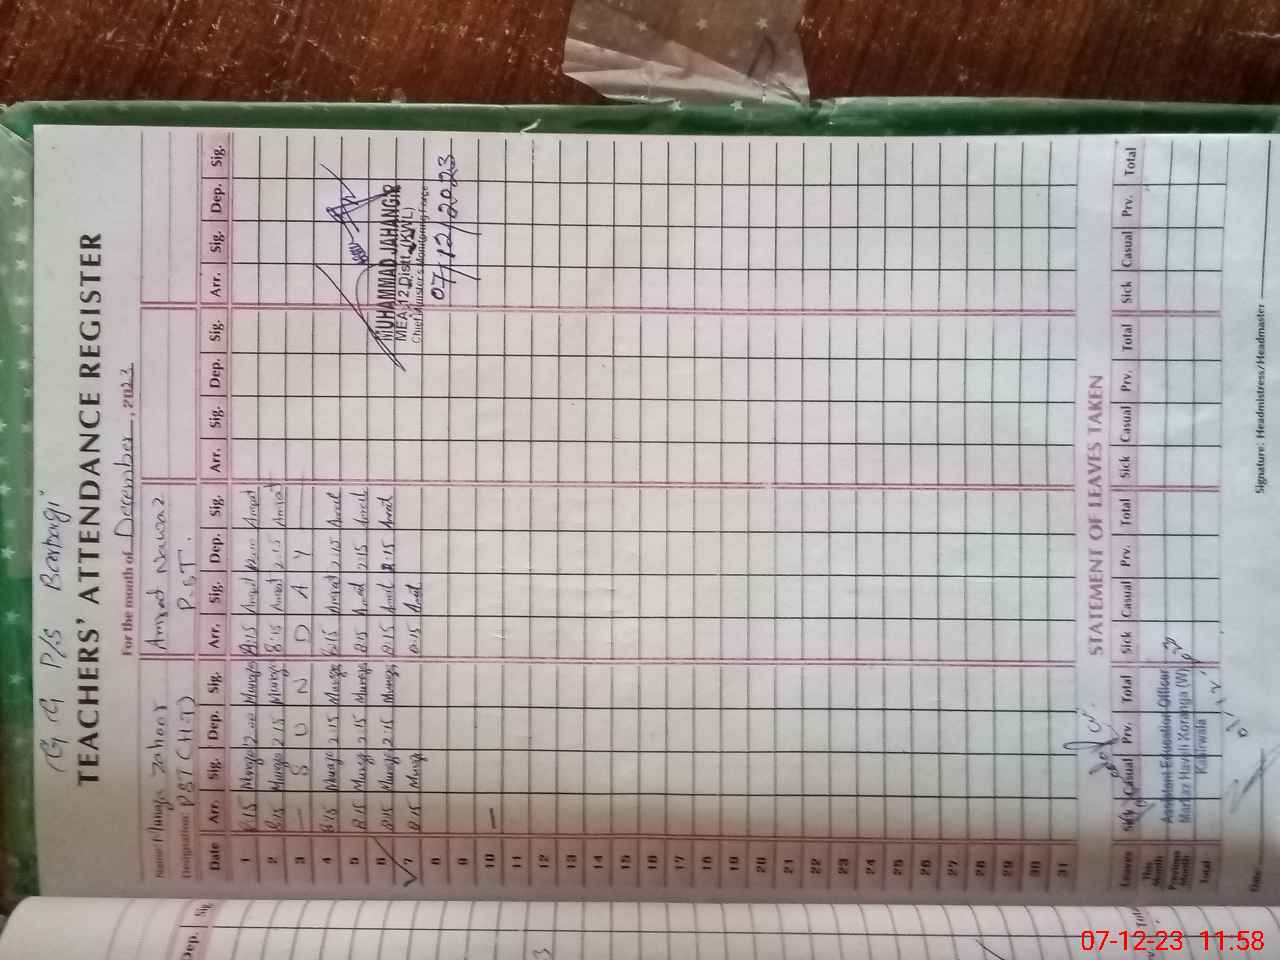 G G P/S Barbagi"
TEACHERS' ATTENDANCE REGISTER
For the month of December, 2023
Name: Munaza Zahoor Amjad Nawaz
Designation: PST (HT) P.S.T.
Date Arr. Sig. Dep. Sig. Arr. Sig. Dep. Sig. Arr. Sig. Dep. Sig. Arr. Sig. Dep. Sig.
1 8:15 Munaza 12:00 Munaza 8:15 Amjad 12:00 Amjad
2 8:15 Munaza 2:15 Munaza 8:15 Amjad 2:15 Amjad
3 — S U N D A Y —
4 8:15 Munaza 2:15 Munaza 8:15 Amjad 2:15 Amjad
5 8:15 Munaza 2:15 Munaza 8:15 Amjad 2:15 Amjad
6 8:15 Munaza 2:15 Munaza 8:15 Amjad 2:15 Amjad
7 8:15 Munaza 8:15 Amjad
MUHAMMAD JAHANGIR
MEA-12 Distt. (KWL)
Chief Minister's Monitoring Force
07/12/2023
8
9
10 —
11
12
13
14
15
16
17
18
19
20
21
22
23
24
25
26
27
28
29
30
31
STATEMENT OF LEAVES TAKEN
Leaves Sick Casual Prv. Total Sick Casual Prv. Total Sick Casual Prv. Total Sick Casual Prv. Total
This Month
Previous Month
Total
Assistant Education Officer
Markaz Haveli Koranga (W)
Kabirwala
Date: Signature: Headmistress/Headmaster
Dep. Sig.
Total
07-12-23 11:58